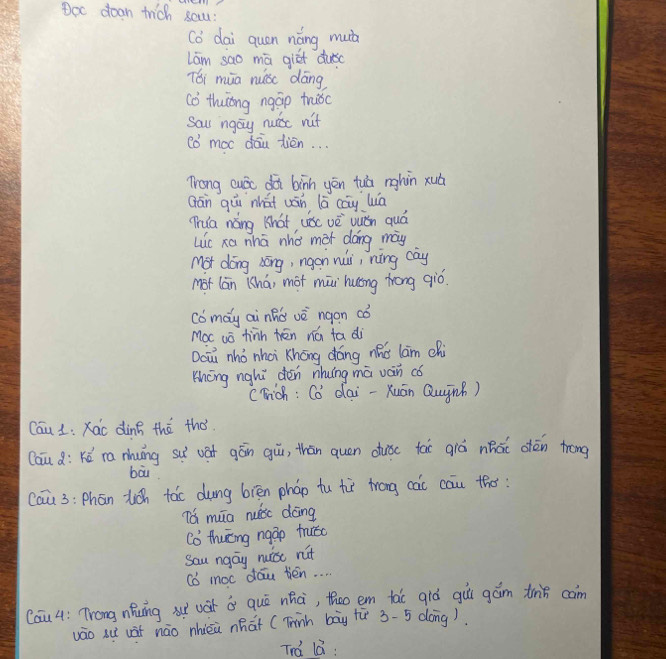 Đọc đoạn trích sau:
Cỏ dại quen nắng mưa
Làm sao mà giết được
Tới mùa nước dâng
Cỏ thường ngập trước
Sau ngày nước rút
Cỏ mọc đầu tiên ...
Trong cuộc đời bình yên tựa nghìn xưa
Gần gũi nhất vẫn là cây lúa
Trưa nắng khát ước về vườn quả
Lúc xa nhà nhớ một dáng mây
Một dòng sông, ngọn núi, rừng cây
Một làn khói, một mùi hương trong gió.
Có mấy ai nhớ về ngọn cỏ
Mọc vô tình trên lối ta đi
Dẫu nhỏ nhoi không đáng nhớ làm chi
Không nghĩ đến nhưng mà vẫn có
(Trích: Cỏ dại - Xuân Quỳnh)
Câu 1: Xác định thể thơ.
Câu 2: Kể ra những sự vật gần gũi, thân quen được tác giả nhắc đến trong
bài
Câu 3: Phân tích tác dụng biện pháp tu từ trong các câu thơ:
Tới mùa nước dâng
Cỏ thường ngập trước
Sau ngày nước rút
Cỏ mọc đầu tiên ....
Câu 4: Trong những sự vật ở quê nhà, theo em tác giả gửi gắm tình cảm
vào sự vật nào nhiều nhất (Trình bày từ 3-5 dòng).
Trả là: